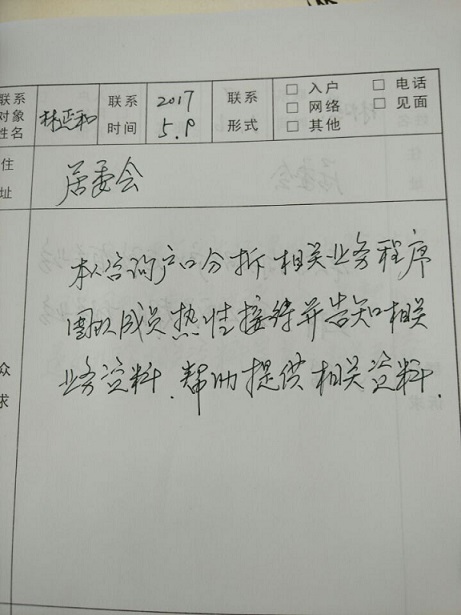 联系对象姓名 林正和 联系时间 2017 5.9 联系形式 □ 入户 □ 电话 □ 网络 □ 见面 □ 其他
住址 居委会
众求
本人咨询户口分拆相关业务程序
团队成员热性接待并告知相关
业务资料.帮助提供相关资料.